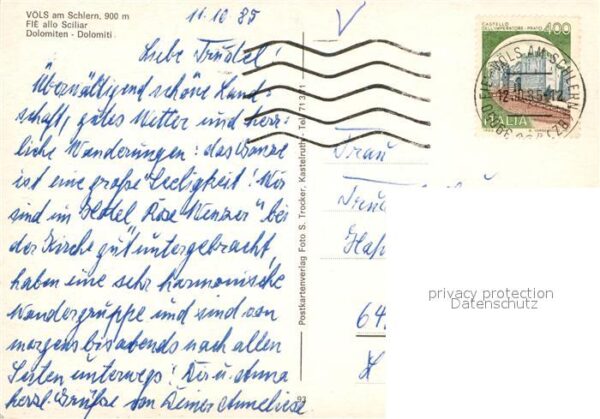 VÖLS am Schlern, 900 m
FIÈ allo Sciliar
Dolomiten - Dolomiti
11.10.85
V
Liebe Trudel!
Überwältigend schöne Land-
schaft, gutes Wetter und herr-
liche Wanderungen: das Ganze
ist eine große Seeligkeit! Wir
sind im Hotel Rose Wenzer" bei
der Kirche gut untergebracht,
haben eine sehr harmonische
Wandergruppe und sind von
morgens bis abends nach allen
Seiten unterwegs! Dir u. Anna
herzl. Grüße von Deiner Anneliese
93
Postkartenverlag Foto S. Trocker, Kastelruth, Tel. 71
CASTELLO
DELL'IMPERATORE - PRATO
400
ITALIA
VÖLS AM SCHLERN
Frau
64
privacy protection
Datenschutz